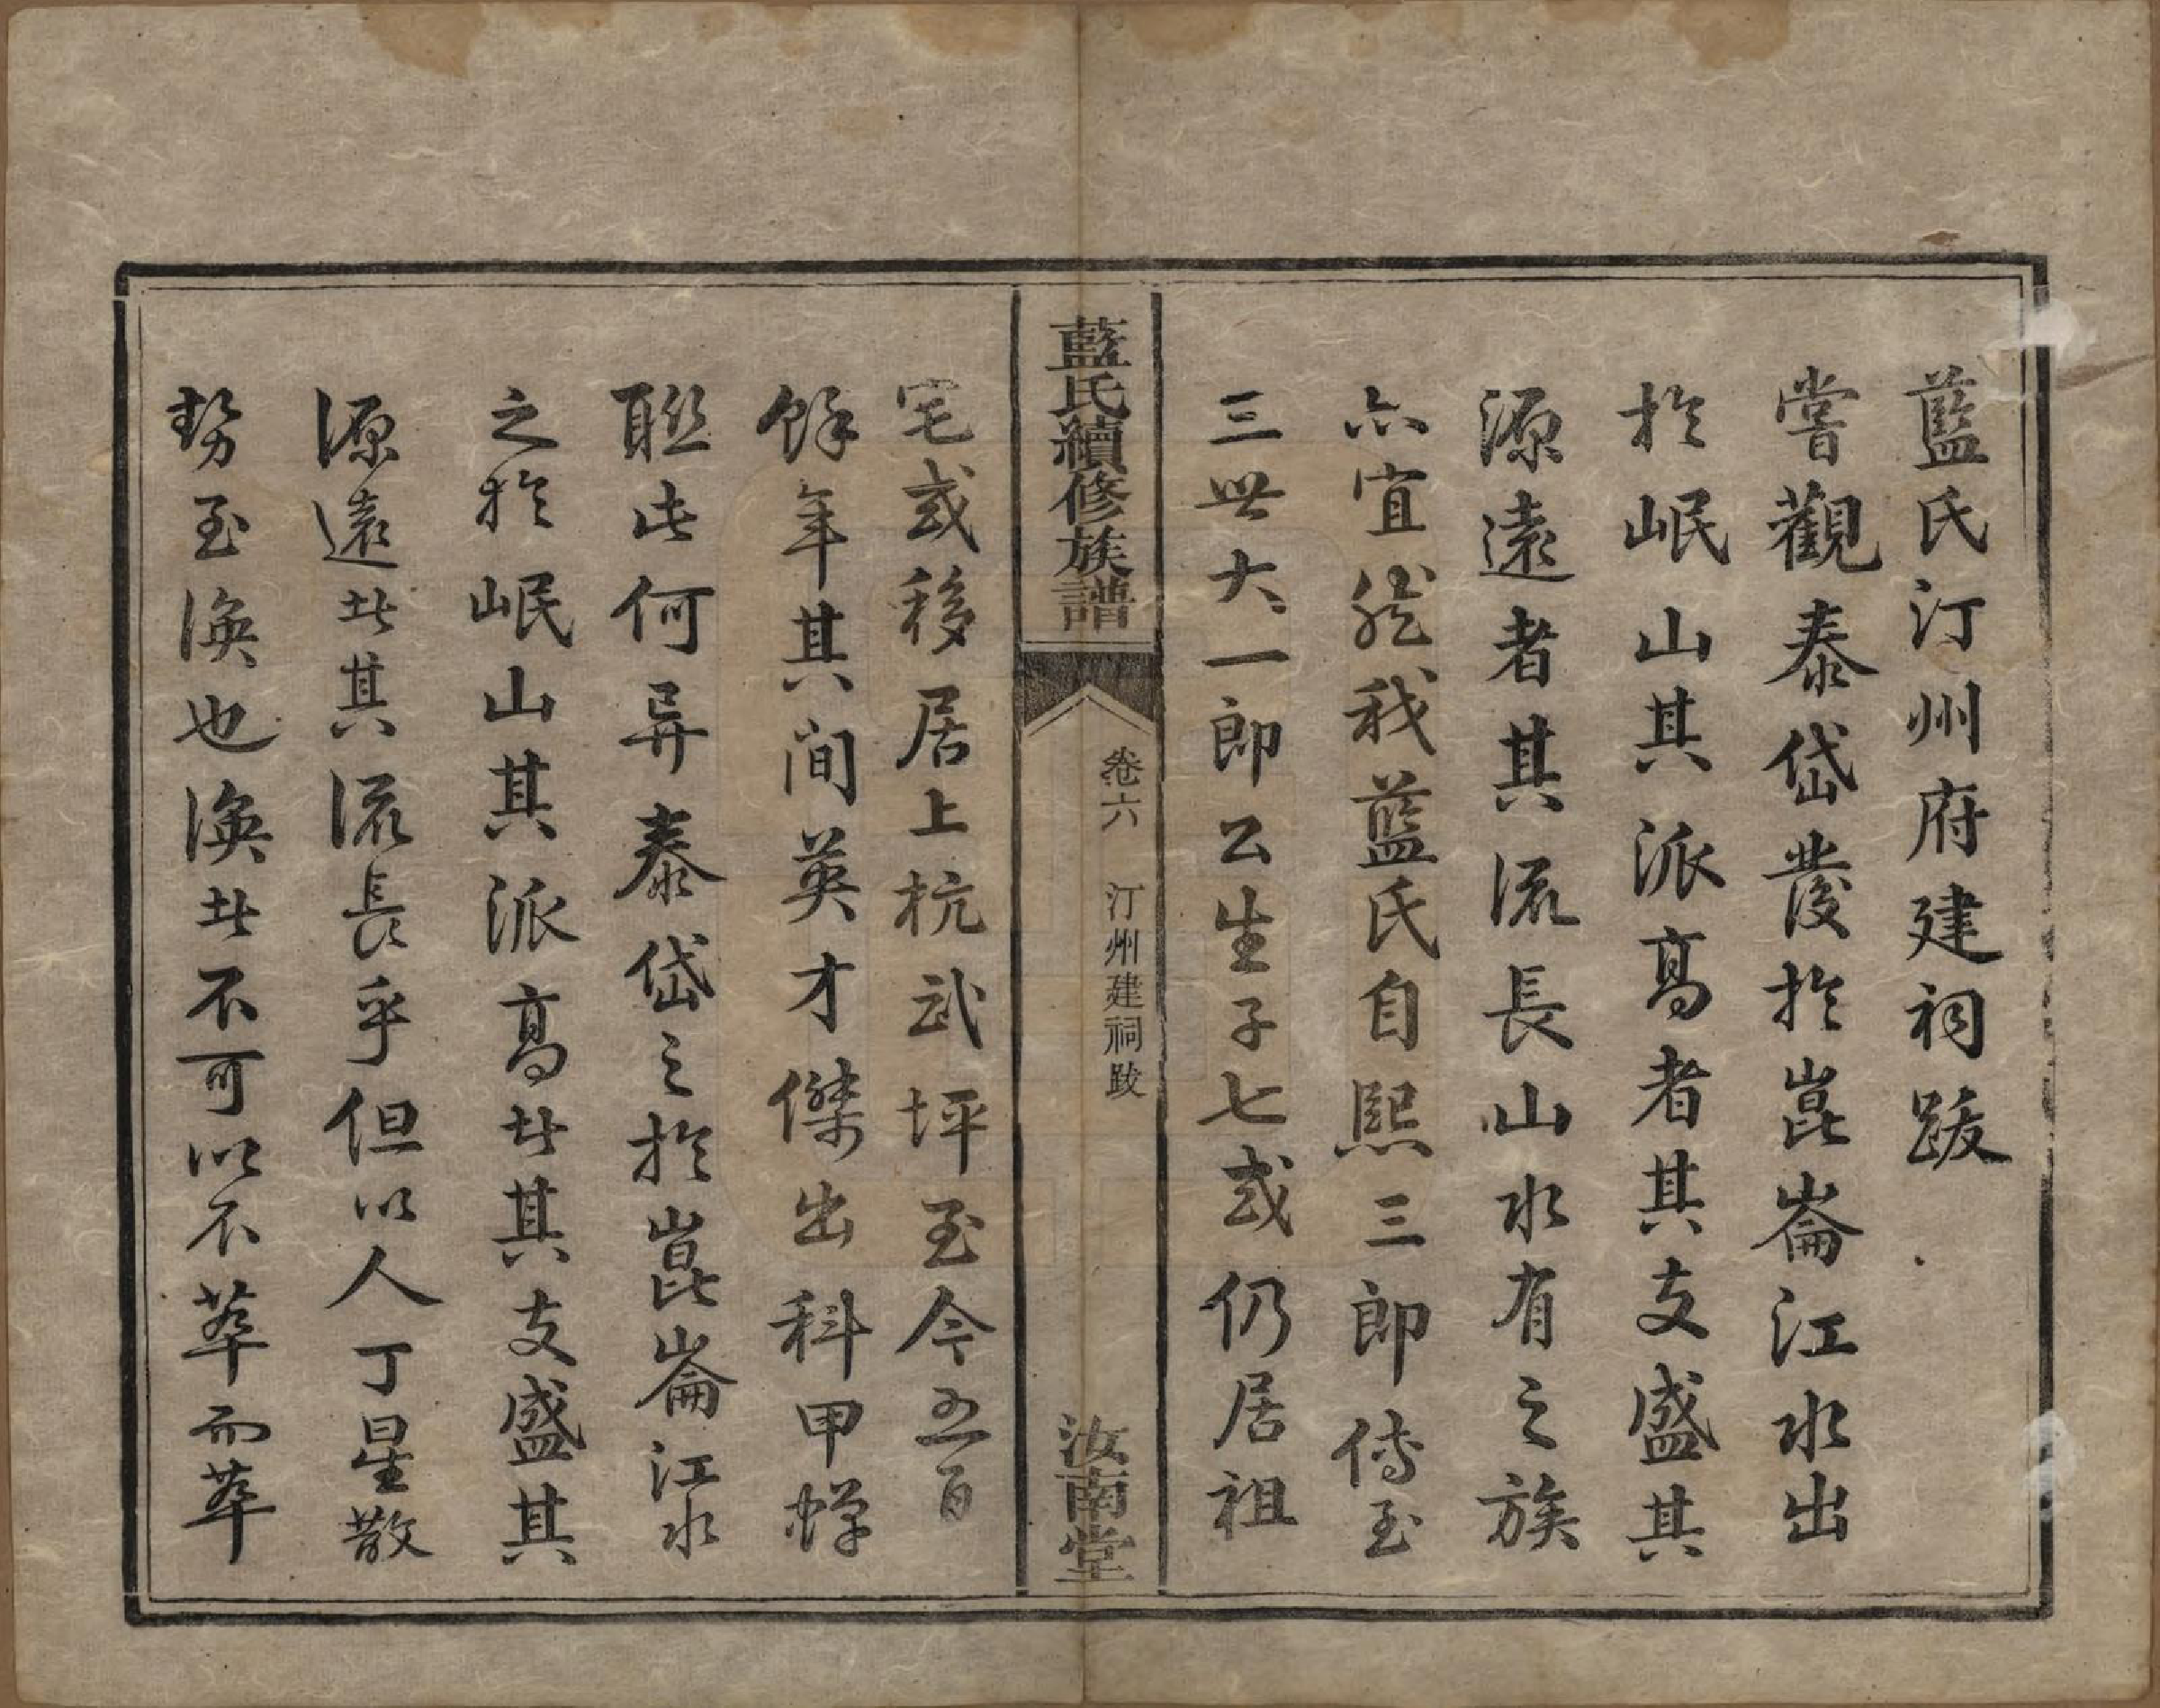 藍氏汀州府建祠跋
嘗觀泰岱發於崑崙江水出
於岷山其派高者其支盛其
源遠者其流長山水有之族
亦宜然我藍氏自熙三郎傳至
三世大一郎公生子七或仍居祖
藍氏續修族譜
卷六 汀州建祠跋
汝南堂
宅或移居上杭武坪至今五百
餘年其间英才傑出科甲蟬
聯此何异泰岱之於崑崙江水
之於岷山其派高者其支盛其
源遠者其流長乎但以人丁星散
勢至渙也渙者不可以不萃而萃